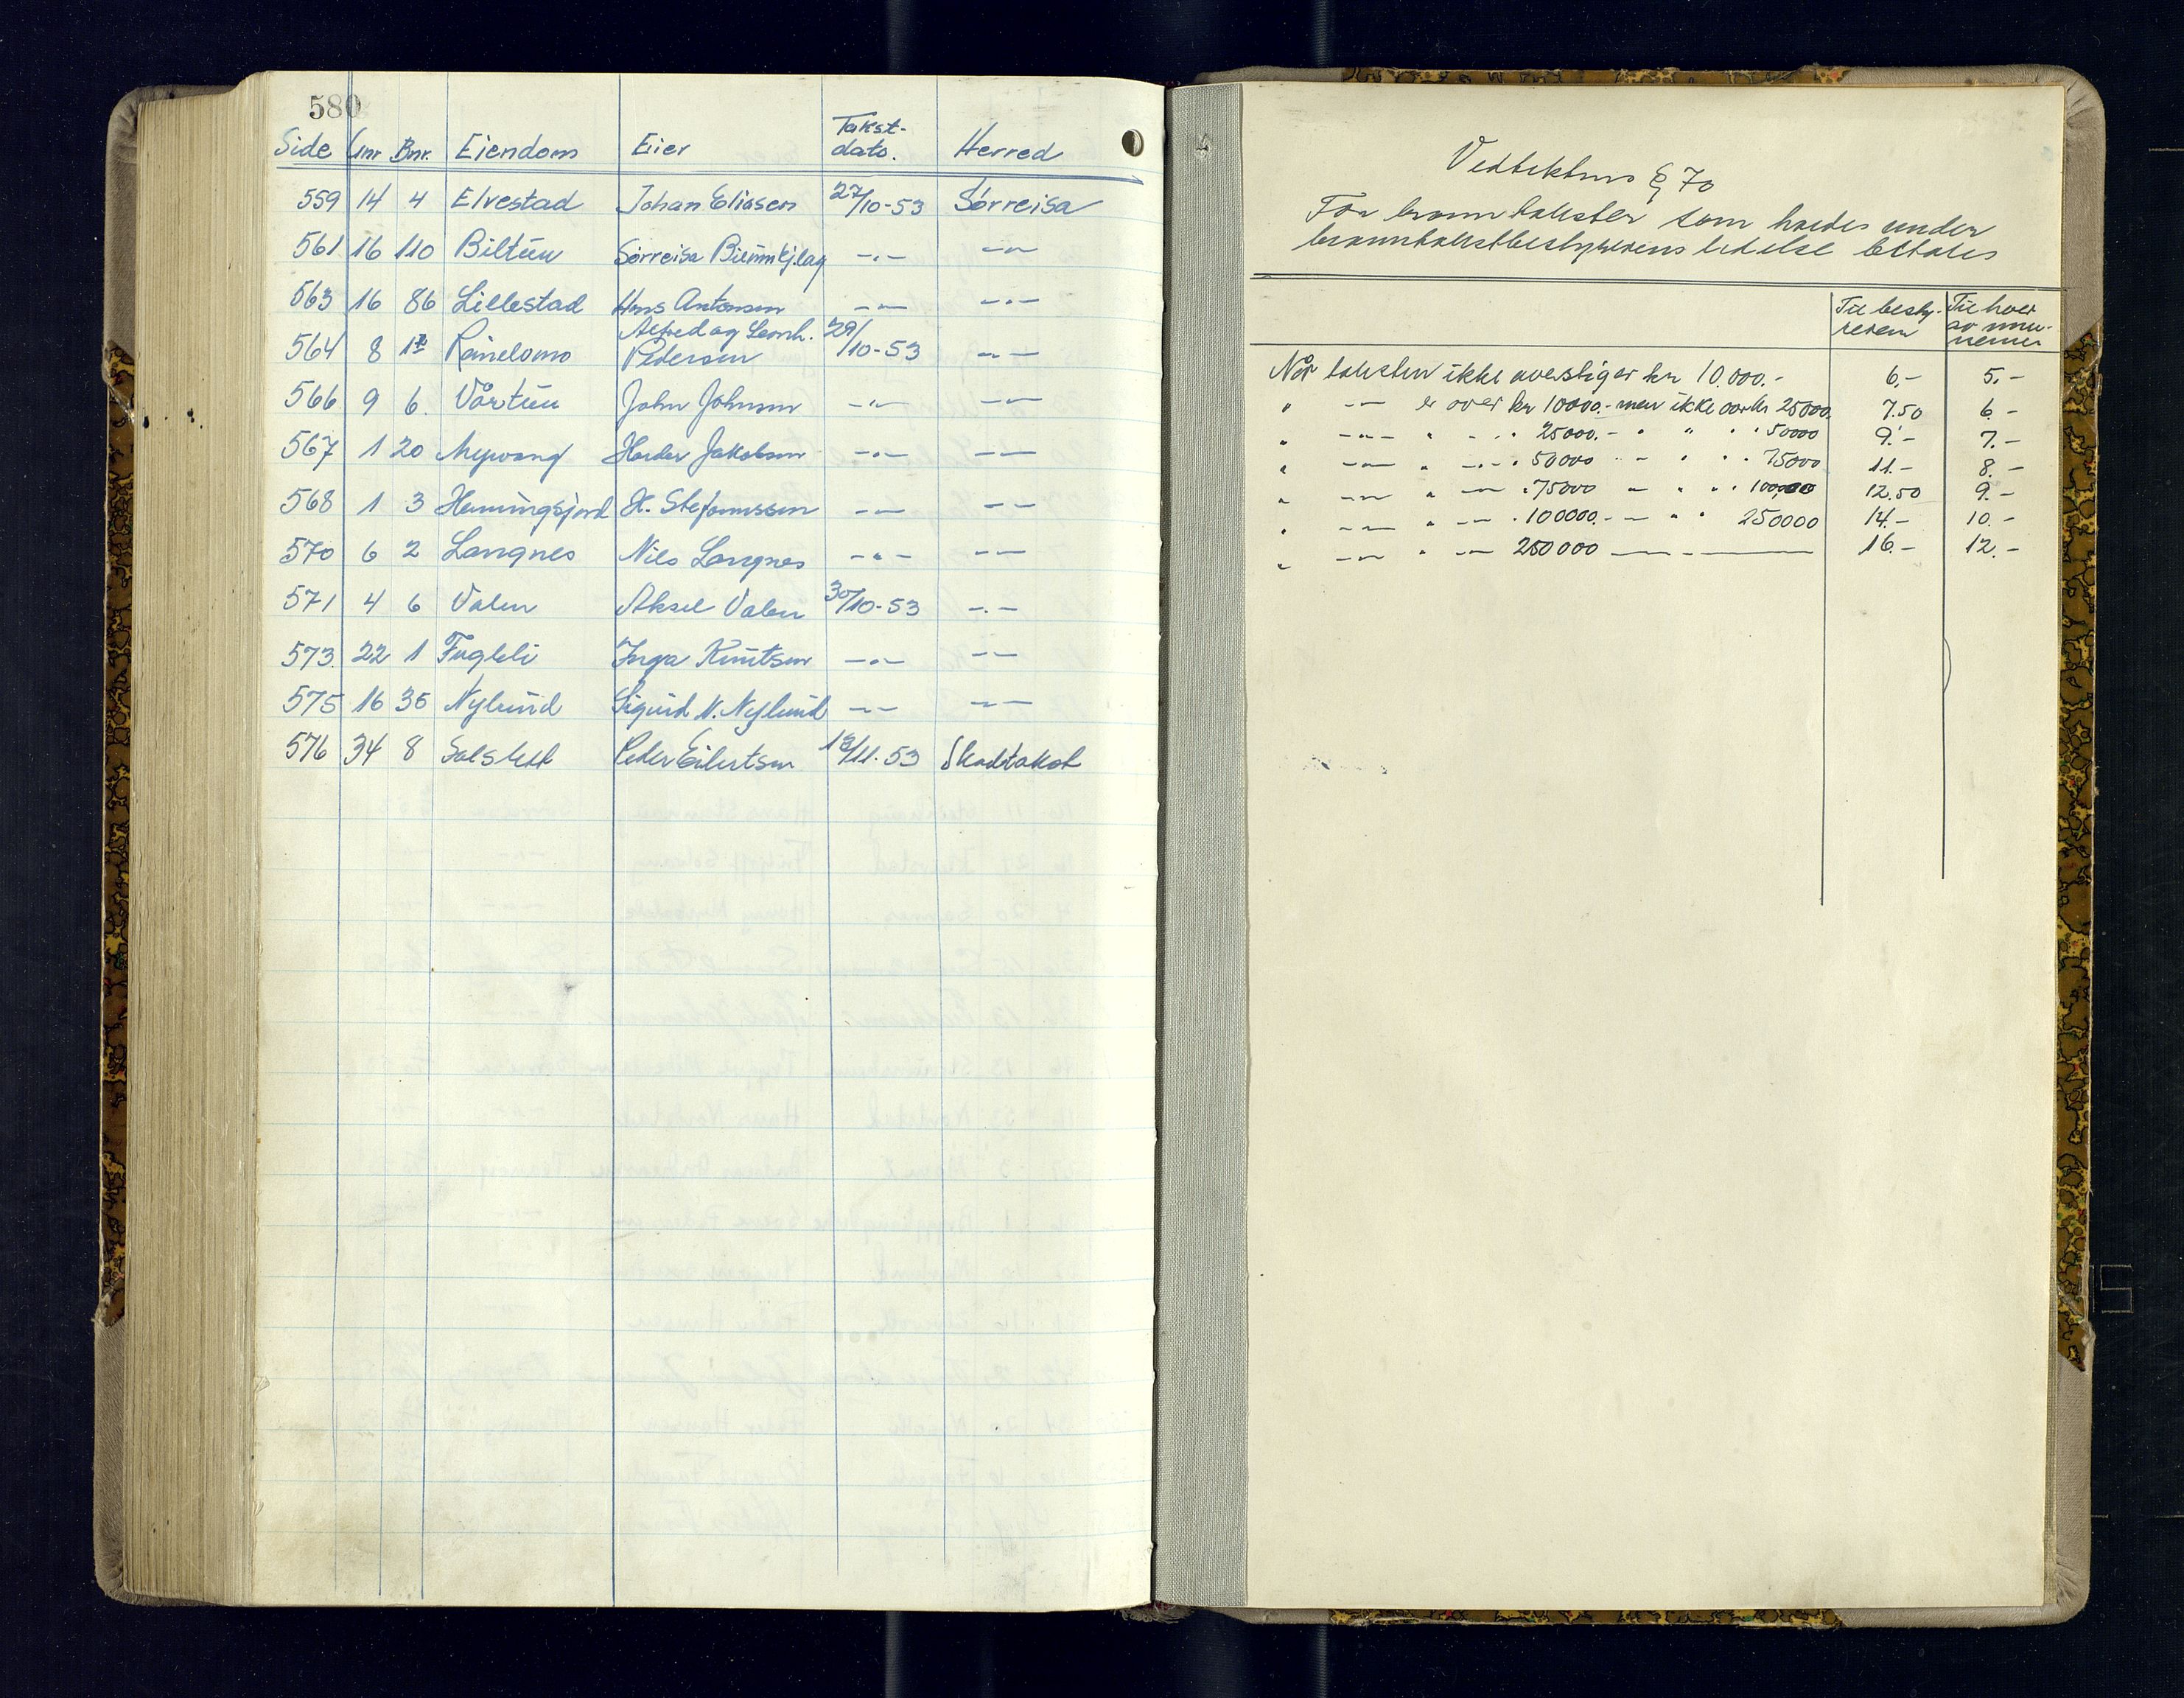 580
Side Gnr Bnr. Eiendom Eier Takst-dato. Herred
559 14 4 Elvestad Johan Eliasen 27/10-53 Sørreisa
561 16 110 Biltun Sørreisa -"- -"-
563 16 86 Lillestad Hans Antonsen -"- -"-
564 8 Alfred og Leonh. Pedersen 29/10-53 -"-
566 9 6. Vårtun John Johnsen -"- -"-
567 1 20 Hardar Jakobsen -"- -"-
568 1 3 Hemmingsjord H. Stefanussen -"- -"-
570 6 2 Langnes Nils Langnes -"- -"-
571 4 6 Valen Aksel Valen 30/10-53 -"-
573 22 1 Fugleli Inga Knutsen -"- -"-
575 16 35 Nylund Sigurd N. Nylund -"- -"-
576 34 8 Peder Eilertsen /11.53
Vedtektens § 70
For branntakster som holdes under
branntakstbestyrerens ledelse betales
Til besty-reren Til hver av menn-nene
Når taksten ikke overstiger kr 10.000.- 6.- 5.-
" -"- er over kr 10000.- men ikke over kr 25000. 7.50 6.-
" -"- " -"- " 25000.- " " " " 50000 9.- 7.-
" -"- " -"- " 50000 - " " " 75000 11.- 8.-
" -"- " -"- " 75000 - " " " 100000 12.50 9.-
" -"- " -"- " 100000.- - " " 250000 14.- 10.-
" -"- " -"- 250000 — - — 16.- 12.-